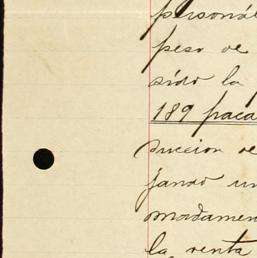 personal
peso de
sido la
189 paca
duccion de
jando un
modamen
la renta